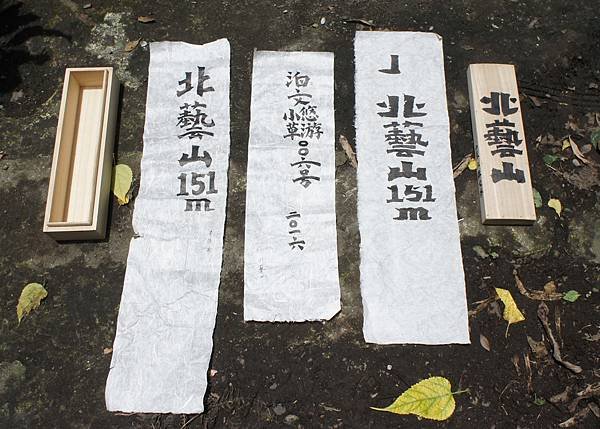 北藝山
151
m
泊文悠游
小草００六号
二〇一六
北藝山
151
m
北藝山